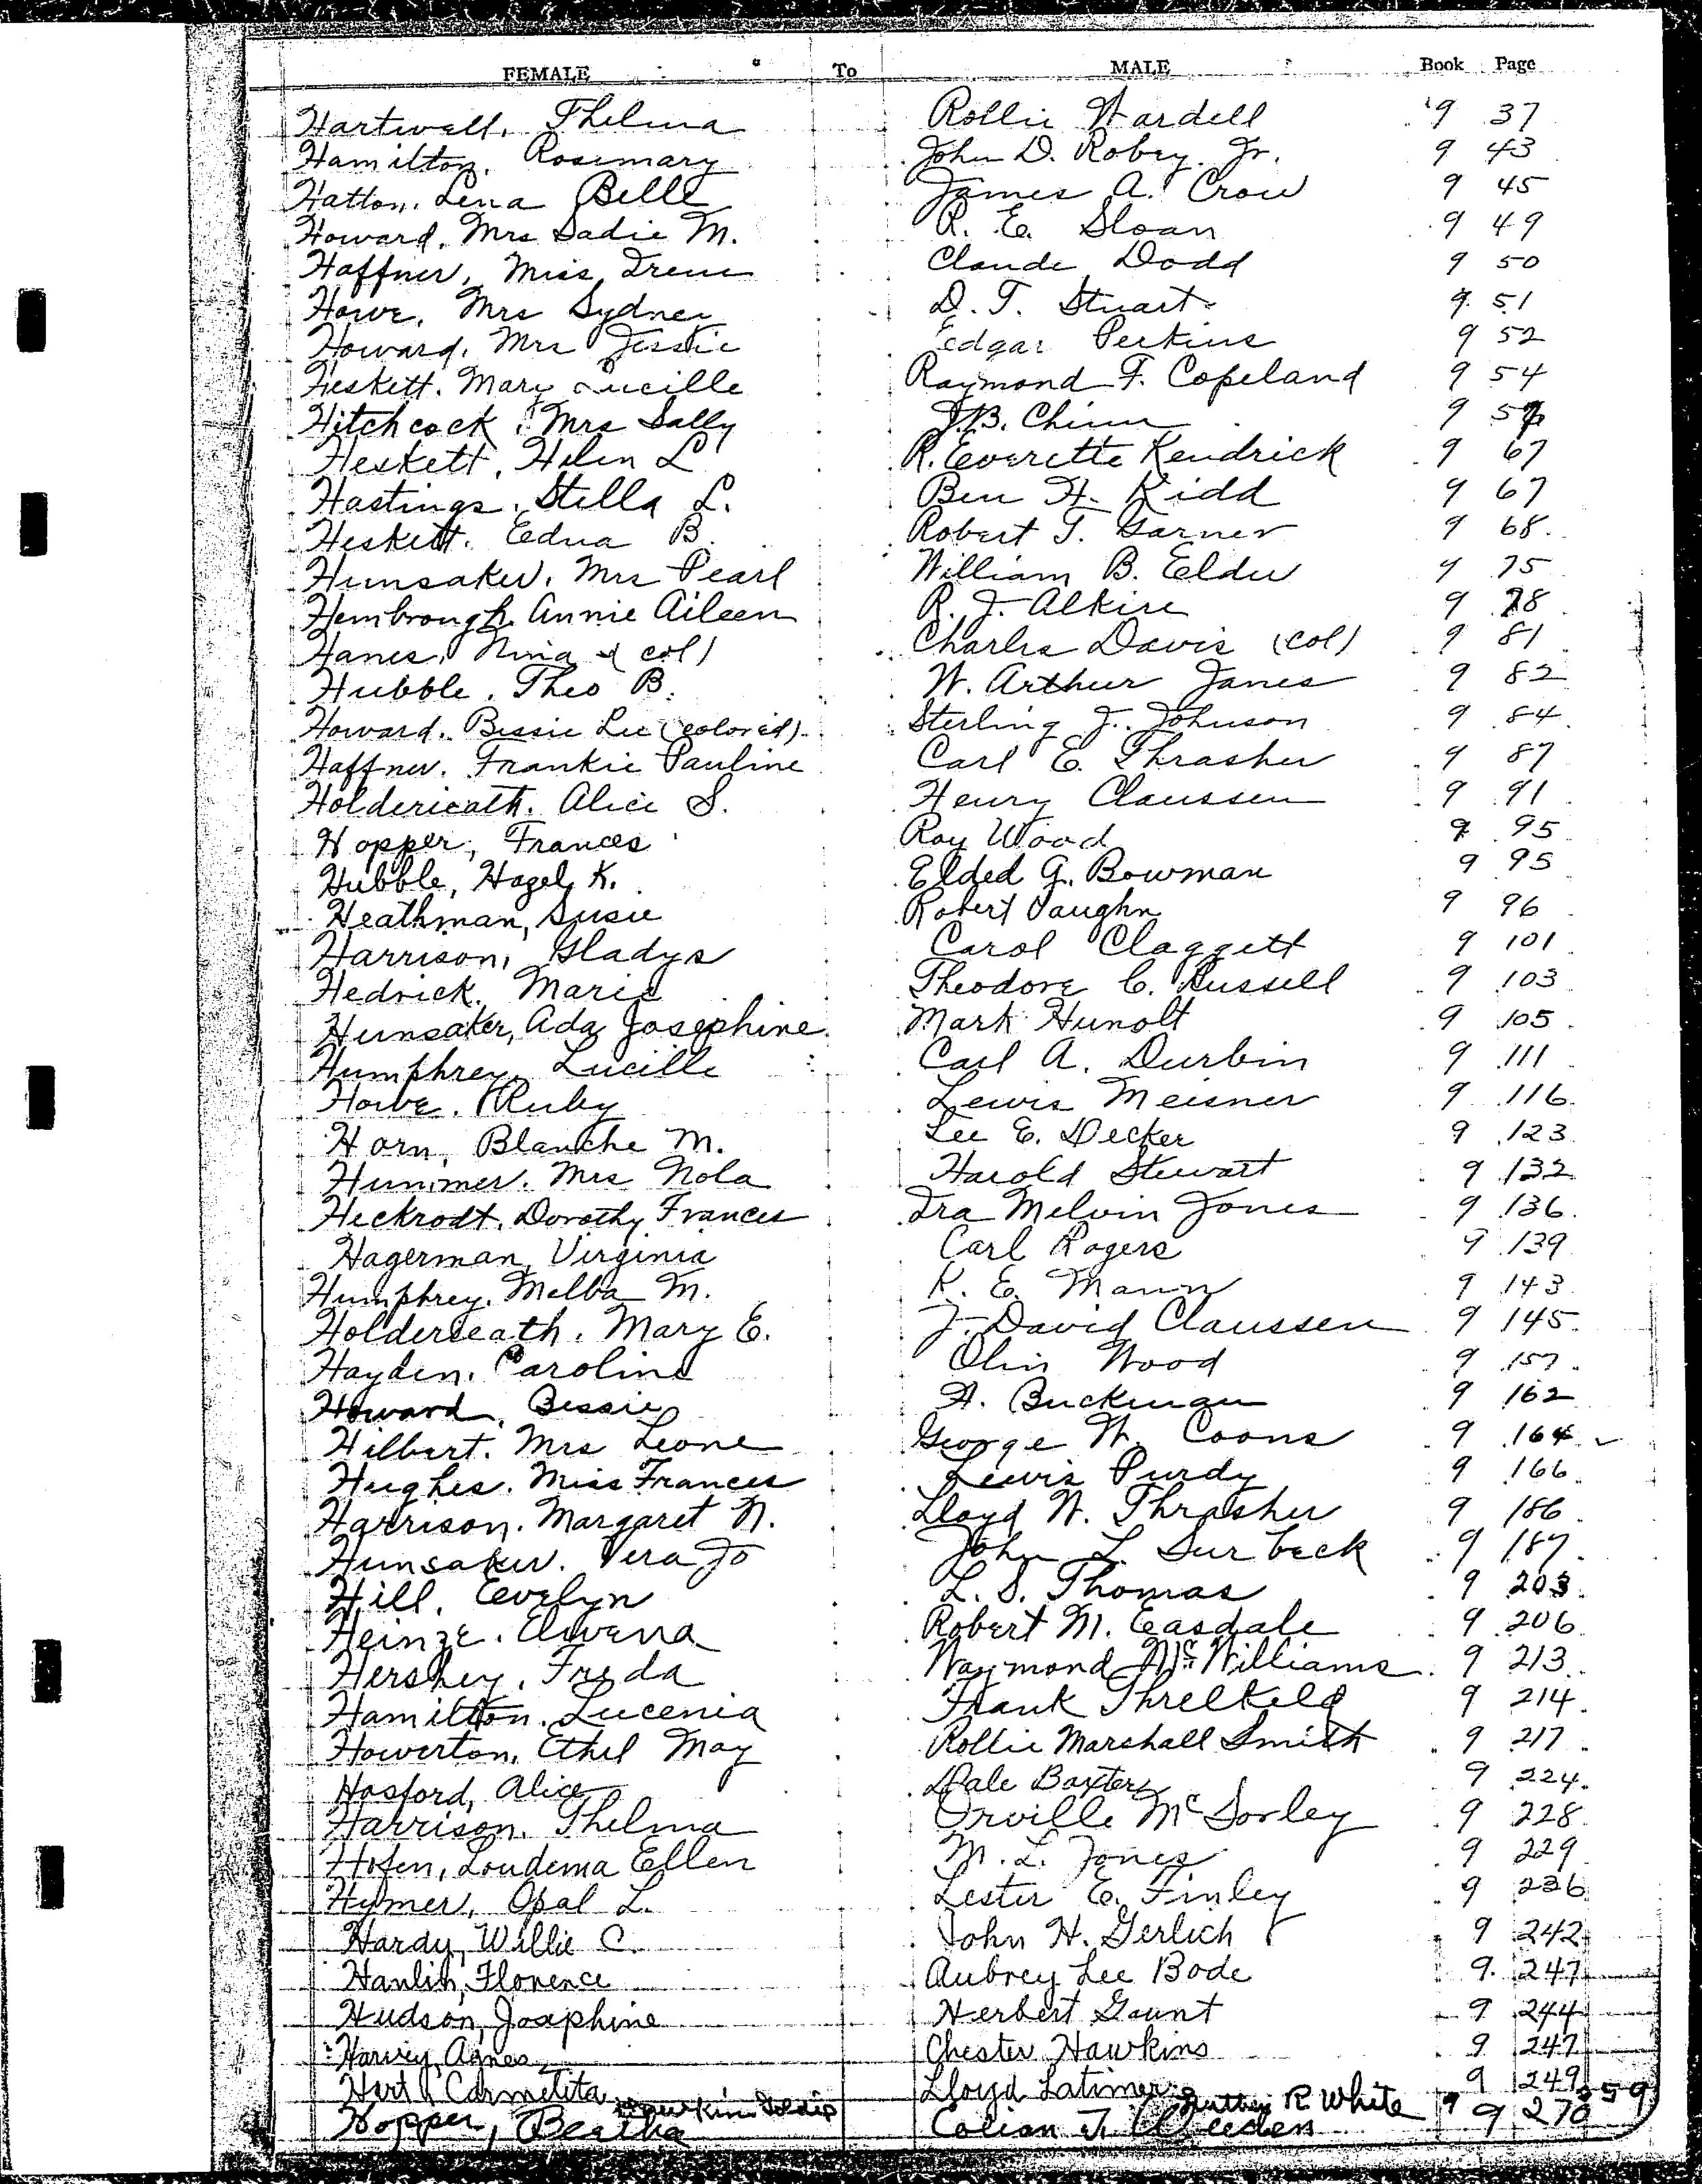 FEMALE To MALE Book Page
Hartwell, Thelma Rollie Wardell 9 37
Hamilton, Rosemary John D. Robey, Jr. 9 43
Hatton, Lena Belle James A. Crow 9 45
Howard, Mrs Sadie M. R. E. Sloan 9 49
Haffner, Miss Irene Claude Dodd 9 50
Howe, Mrs Sydney D. T. Stuart 9 51
Howard, Mrs Jessie Edgar Perkins 9 52
Heskett, Mary Lucille Raymond F. Copeland 9 54
Hitchcock, Mrs Sally J.B. Chinn 9
Heskett, Helen L R. Everette Kendrick 9 67
Hastings, Stella L. Ben H. Kidd 9 67
Heskett, Edna B. Robert T. Garner 9 68
Hunsaker, Mrs Pearl William B. Elder 9 75
Hembrough, Annie Aileen R. J. Alkire 9 78
Hanes, Nina (col) Charles Davis (col) 9 81
Hubble, Theo B. W. Arthur Janes 9 82
Howard, Bessie Lee (colored) Sterling J. Johnson 9 84
Haffner, Frankie Pauline Carl E. Thrasher 9 87
Holderieath, Alice S. Henry Claussen 9 91
Hopper, Frances Roy Wood 9 95
Hubble, Hazel K. Elded G. Bowman 9 95
Heathman, Susie Robert Vaughn 9 96
Harrison, Gladys Carol Claggett 9 101
Hedrick, Marie Theodore C. Russell 9 103
Hunsaker, Ada Josephine Mark Hunolt 9 105
Humphrey, Lucille Carl A. Durbin 9 111
Howe, Ruby Lewis Meisner 9 116
Horn, Blanche M. Lee E. Decker 9 123
Hummer, Mrs Nola Harold Stewart 9 132
Heckrodt, Dorothy Frances Ira Melvin Jones 9 136
Hagerman, Virginia Carl Rogers 9 139
Humphrey, Melba M. K. E. Mann 9 143
Holderieath, Mary E. J. David Claussen 9 145
Hayden, Caroline Olin Wood 9 157
Howard, Bessie H. Buckman 9 162
Hilbert, Mrs Leone George W. Coons 9 164
Hughes, Miss Frances Lewis Purdy 9 166
Harrison, Margaret N. Lloyd W. Thrasher 9 186
Hunsaker, Vera Jo John L. Surbeck 9 187
Hill, Evelyn L. S. Thomas 9 203
Heinze, Elwena Robert M. Easdale 9 206
Hershey, Freda Waymond McWilliams 9 213
Hamilton, Lucenia Frank Threlkeld 9 214
Howerton, Ethel May Rollie Marshall Smith 9 217
Hosford, Alice Dale Baxter 9 224
Harrison, Thelma Orville McSorley 9 228
Hofen, Loudema Ellen M. L. Jones 9 229
Hymer, Opal L. Lester E. Finley 9 236
Hardy, Willie C. John H. Gerlich 9 242
Hanlin, Florence Aubrey Lee Bode 9 247
Hudson, Josephine Herbert Gaunt 9 244
Harvey, Agnes Chester Hawkins 9 247
Hart, Carmelita Lloyd Latimer 9 249
Hawkins Goldie R White 9 259
Hopper, Beatha 9 270